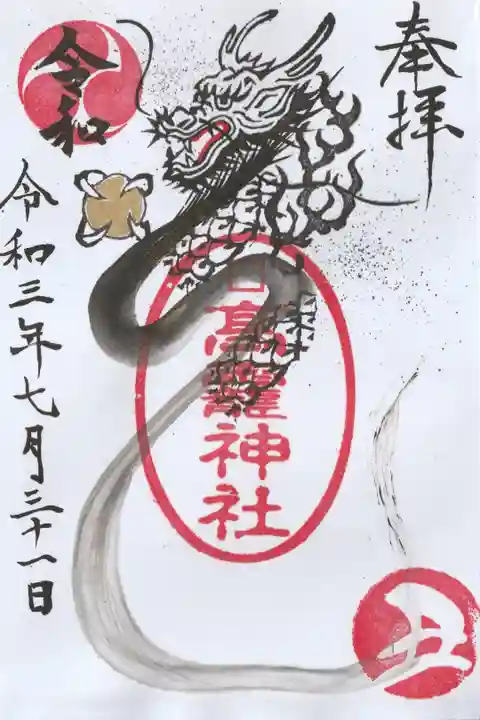 奉拝
高龗神社
丑
令和
令和三年七月三十一日